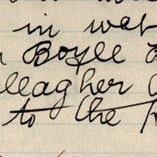 in wat
Boyle
llagher
to the